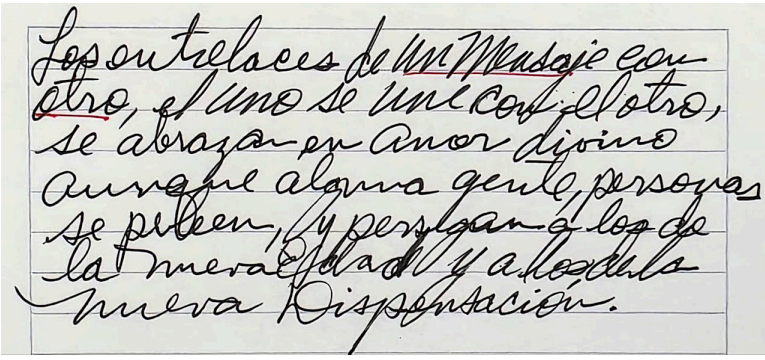 Los entrelaces de un Mensaje con
otro, el uno se une con el otro,
se abrazan en Amor divino
aunque alguna gente, personas
se peleen, y persigan a los de
la nueva Edad y a los de la
nueva Dispensación.